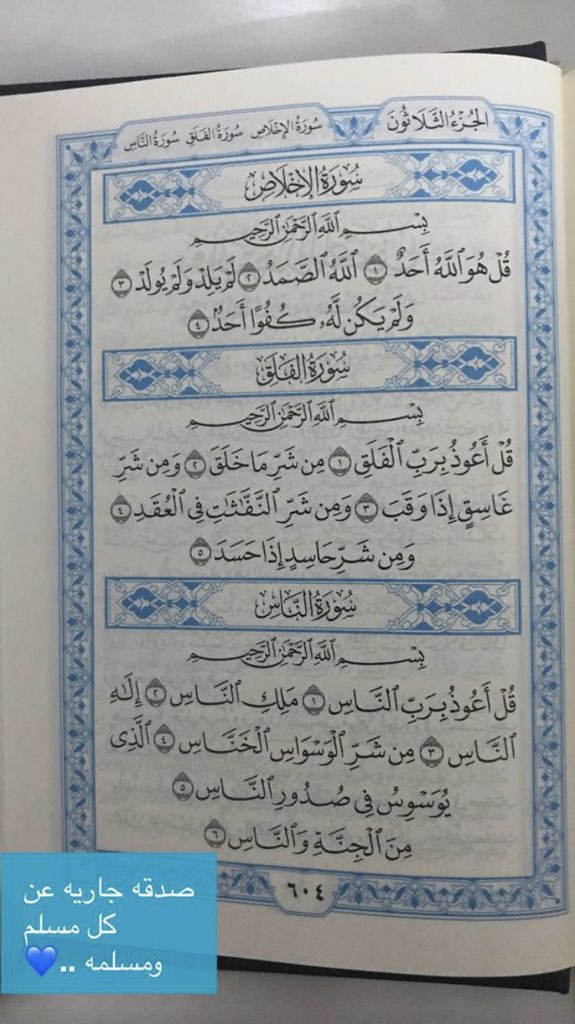 الجُزْءُ الثَّلَاثُونَ سُورَةُ الإِخْلَاصِ سُورَةُ الفَلَقِ سُورَةُ النَّاسِ
سُورَةُ الإِخْلَاصِ
بِسْمِ ٱللَّهِ ٱلرَّحْمَٰنِ ٱلرَّحِيمِ
قُلْ هُوَ ٱللَّهُ أَحَدٌ ١ ٱللَّهُ ٱلصَّمَدُ ٢ لَمْ يَلِدْ وَلَمْ يُولَدْ ٣
وَلَمْ يَكُن لَّهُۥ كُفُوًا أَحَدٌۢ ٤
سُورَةُ الفَلَقِ
بِسْمِ ٱللَّهِ ٱلرَّحْمَٰنِ ٱلرَّحِيمِ
قُلْ أَعُوذُ بِرَبِّ ٱلْفَلَقِ ١ مِن شَرِّ مَا خَلَقَ ٢ وَمِن شَرِّ
غَاسِقٍ إِذَا وَقَبَ ٣ وَمِن شَرِّ ٱلنَّفَّٰثَٰتِ فِى ٱلْعُقَدِ ٤
وَمِن شَرِّ حَاسِدٍ إِذَا حَسَدَ ٥
سُورَةُ النَّاسِ
بِسْمِ ٱللَّهِ ٱلرَّحْمَٰنِ ٱلرَّحِيمِ
قُلْ أَعُوذُ بِرَبِّ ٱلنَّاسِ ١ مَلِكِ ٱلنَّاسِ ٢ إِلَٰهِ
ٱلنَّاسِ ٣ مِن شَرِّ ٱلْوَسْوَاسِ ٱلْخَنَّاسِ ٤ ٱلَّذِى
يُوَسْوِسُ فِى صُدُورِ ٱلنَّاسِ ٥
مِنَ ٱلْجِنَّةِ وَٱلنَّاسِ ٦
٦٠٤
صدقه جاريه عن
كل مسلم
ومسلمه ..💙